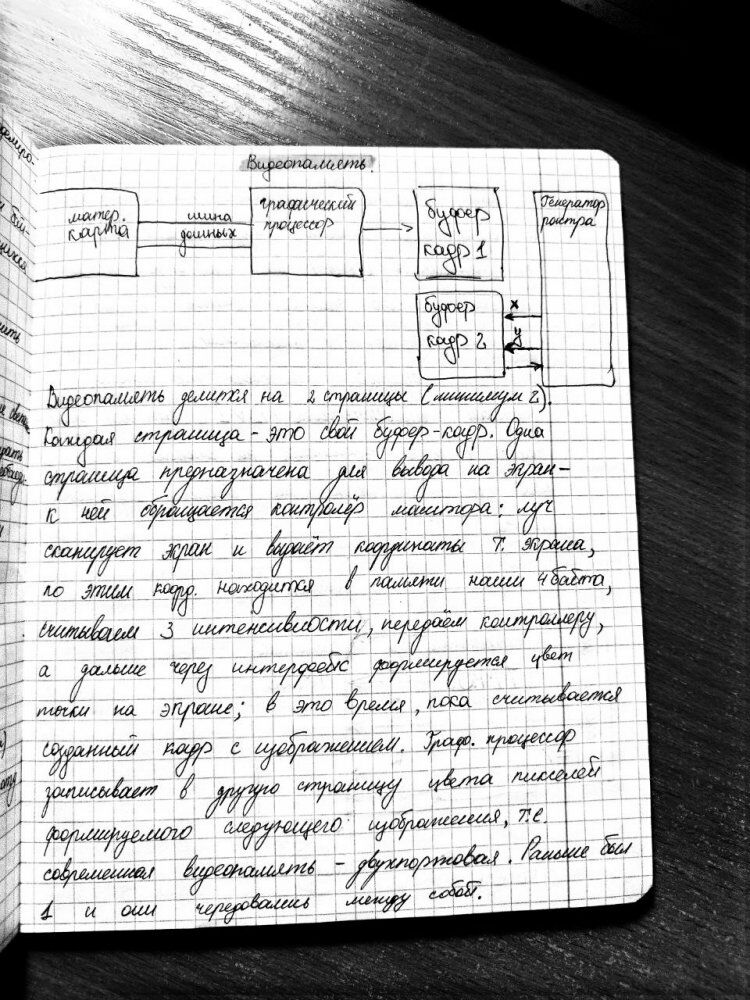 Видеопамять.
матер. карта
шина данных
графический процессор
буфер кадр 1
Генератор растра
буфер кадр 2
x
y
Видеопамять делится на 2 страницы (минимум 2).
Каждая страница - это свой буфер-кадр. Одна
страница предназначена для вывода на экран -
к ней обращается контролёр монитора: луч
сканирует экран и выдаёт координаты т. экрана,
по этим коорд. находится в памяти наши 4 байта,
считываем 3 интенсивности, передаём контроллеру,
а дальше через интерфейс формируется цвет
точки на экране; в это время, пока считывается
созданный кадр с изображением. Граф. процессор
записывает в другую страницу цвета пикселей
формируемого следующего изображения, т.е.
современная видеопамять - двухпортовая. Раньше был
1 и они чередовались между собой.